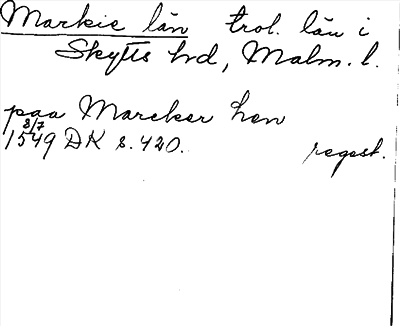 Markie län trol. län i
Skytts hd, Malm. l.
paa Marcker hen
8/7
1549 DK s. 420. regest.